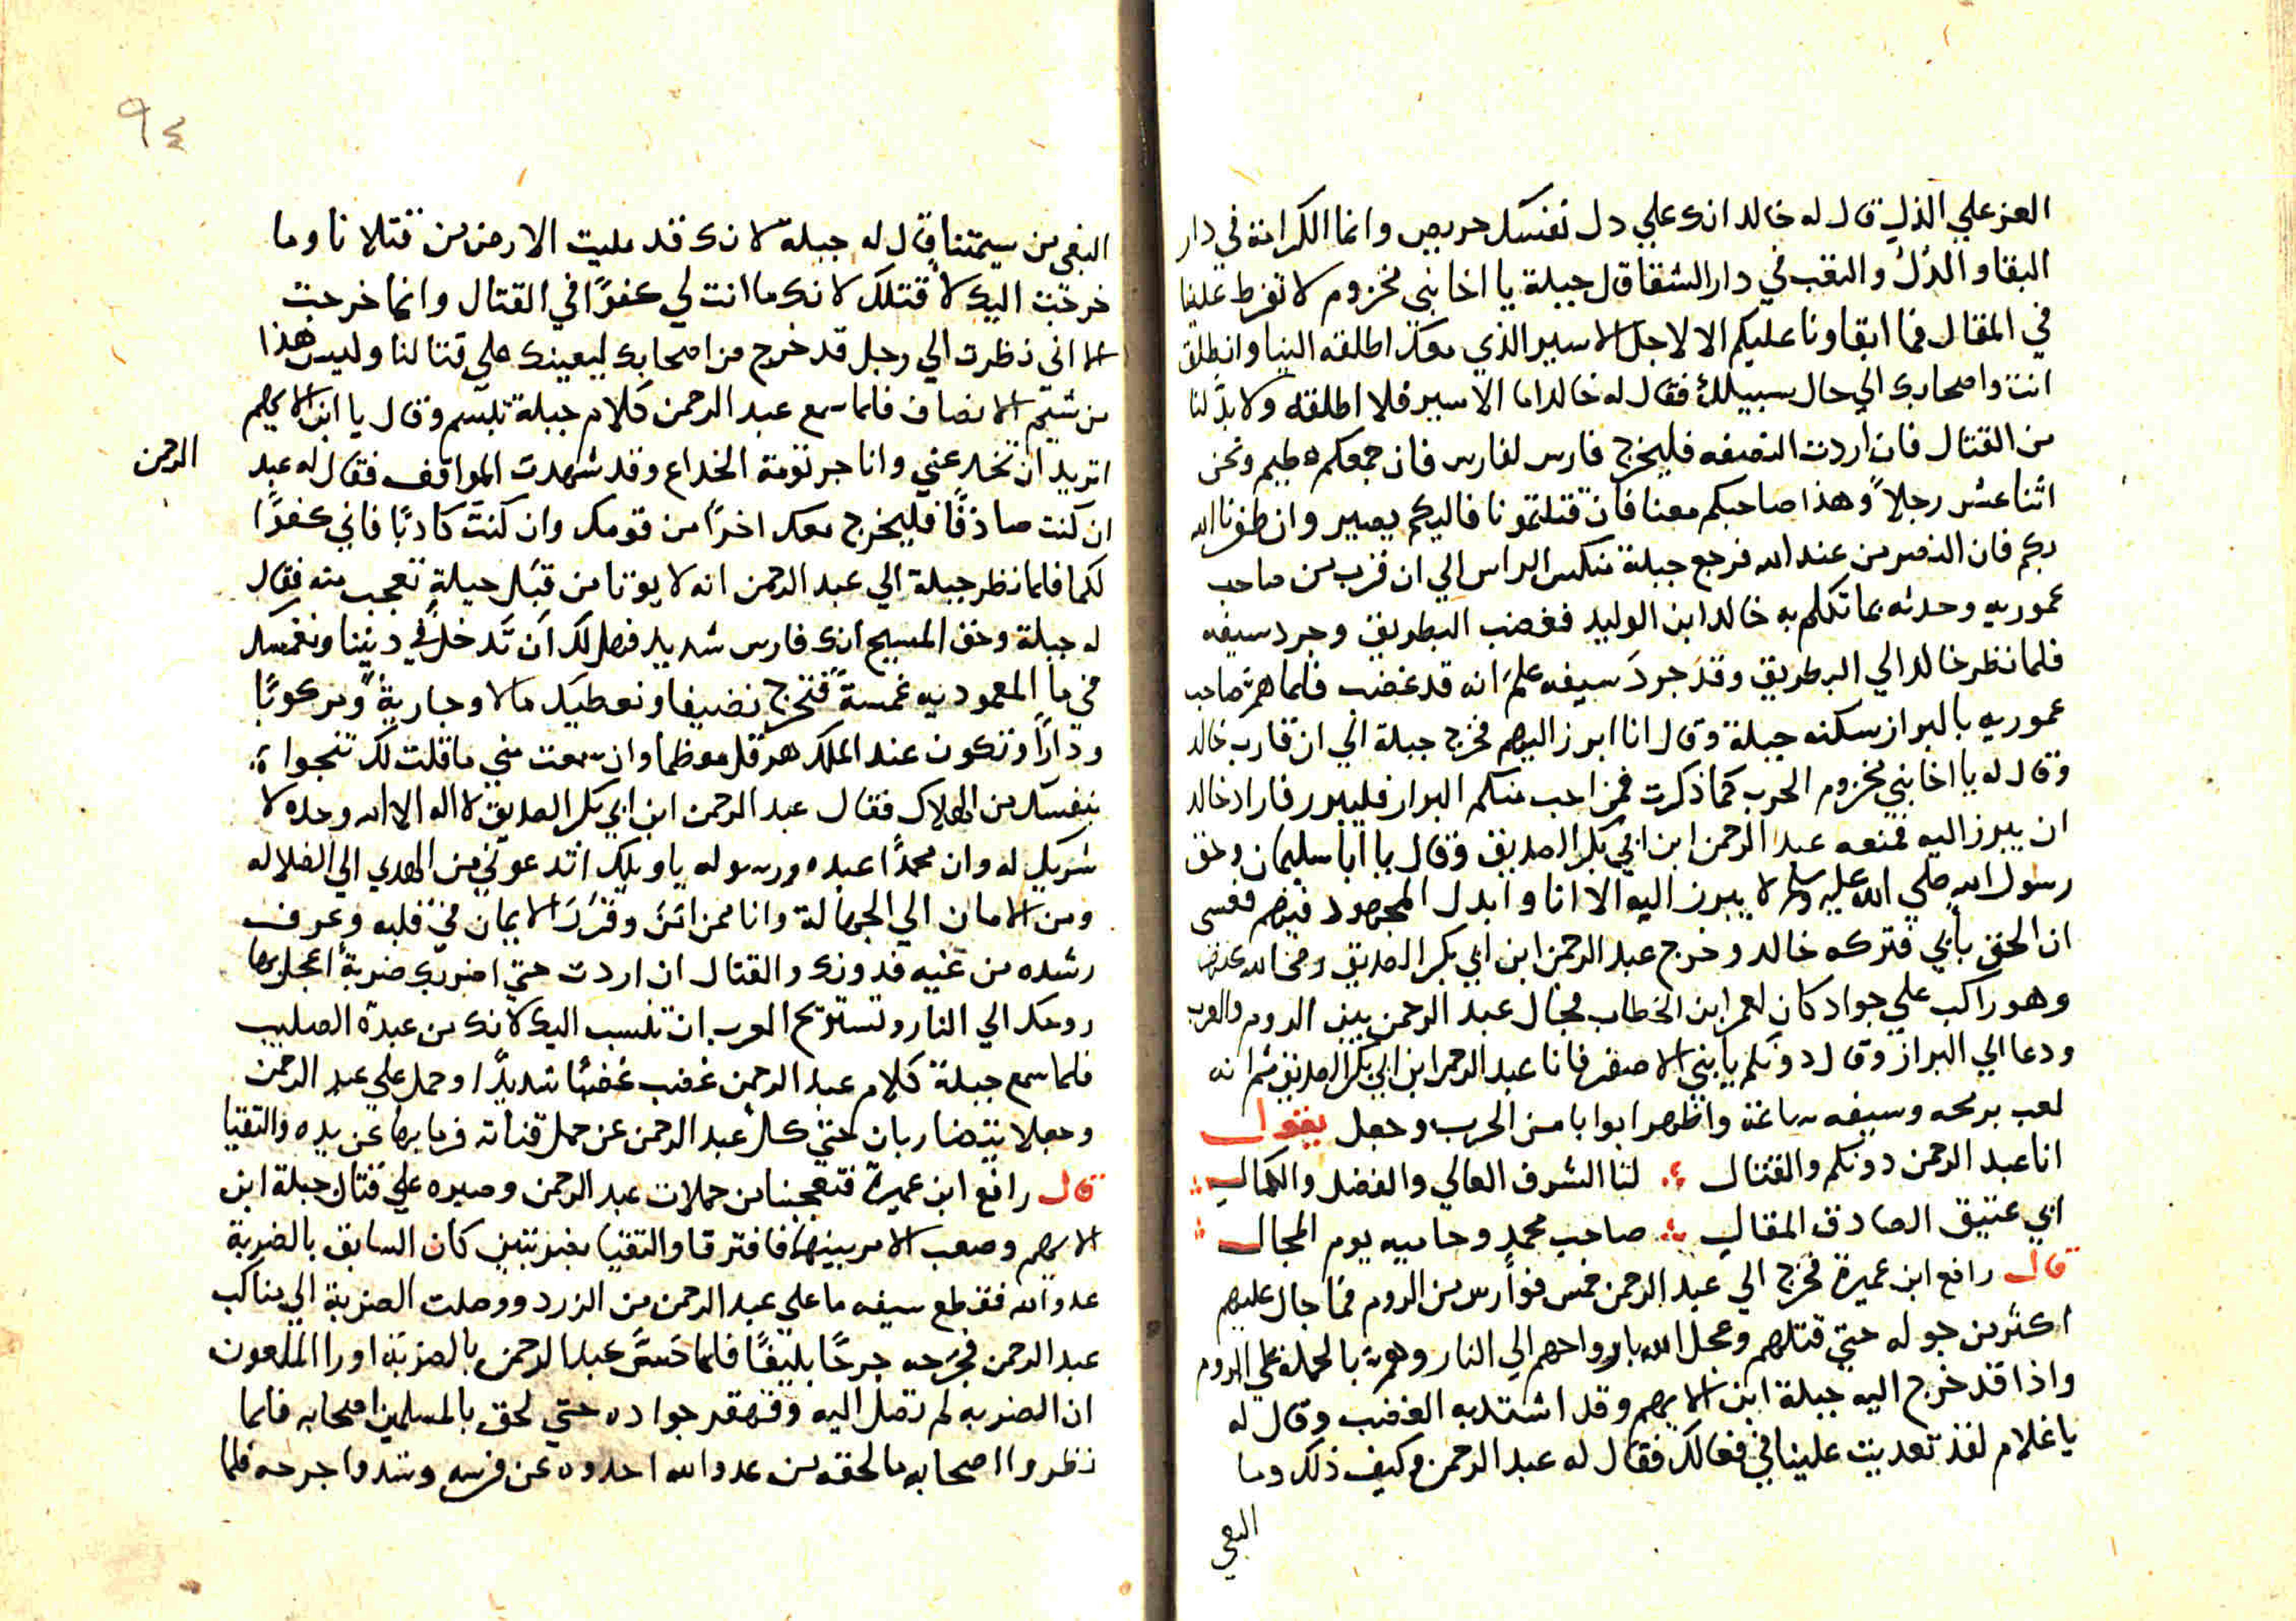 العز علي الذل قال له خالد انك علي دل نفسك حريص وانما الكرامة في دار
البقا والذل والنقب في دار الشقا قال جبلة يا اخا بني مخزوم لا تفرط علينا
في المقال فما ابقاونا عليكم الا لاجل الاسير الذي معك اطلقه الينا وانطلق
انت واصحابك الي حال سبيلك فقال له خالد اما الاسير فلا اطلقه ولا بد لنا
من القتال فان اردت النصفه فليخرج فارس لفارس فان جمعكم عظيم ونحن
اثنا عشر رجلاً وهذا صاحبكم معنا فان قتلتمونا فاليكم يصير وان ظفرنا الله
بكم فان النصر من عند الله فرجع جبلة منكس الراس الي ان قرب من صاحب
عموريه وحدثه بما تكلم به خالد ابن الوليد فغضب البطريق وجرد سيفه
فلما نظر خالد الي البرطريق وقد جرد سيفه علم انه قد غضب فلما هم صاحب
عموريه بالبراز سكنه جبلة وقال انا ابرز اليهم فخرج جبلة الي ان قارب خالد
وقال له يا اخا بني مخزوم الحرب كما ذكرت فمن احب منكم البراز فليبرز فاراد خالد
ان يبرز اليه فمنعه عبد الرحمن ابن ابي بكر الصديق وقال يا ابا سليمان وحق
رسول الله صلي الله عليه وسلم لا يبرز اليه الا انا وابدل المجهود فيهم فعسى
ان الحق بأبي فتركه خالد وخرج عبد الرحمن ابن ابي بكر الصديق رضي الله عنهما
وهو راكب علي جواد كان لعمر ابن الخطاب فجال عبد الرحمن بين الروم والعرب
ودعا الي البراز وقال دونكم يا بني الاصفر فانا عبد الرحمن ابن ابي بكر الصديق ثم انه
لعب برمحه وسيفه ساعة واظهر ابوابا من الحرب وجعل يقول
انا عبد الرحمن دونكم والقتال لنا الشرف العالي والفضل والكمال
ابي عتيق الصادق المقال صاحب محمد وحاميه يوم المجال
قال رافع ابن عميرة فخرج الي عبد الرحمن خمس فوارس من الروم فما جال عليهم
اكثر من جوله حتي قتلهم وعجل الله بارواحهم الي النار وهم بالحملة علي الروم
واذا قد خرج اليه جبلة ابن الايهم وقد اشتد به الغضب وقال له
يا غلام لقد تعديت علينا في فعالك فقال له عبد الرحمن وكيف ذلك وما
البغي
٩٤
البغي من سيمتنا قال له جبلة لانك قد مليت الارض من قتلانا وما
خرجت اليك لاقتلك لانك ما انت لي كفوًا في القتال وانما خرجت
الا اني نظرت الي رجل قد خرج من اصحابك ليعينك علي قتالنا وليس هذا
من شيم الانصاف فلما سمع عبد الرحمن كلام جبلة تبسم وقال يا ابن الايهم
اتريد ان تخدعني وانا جرثومة الخداع وقد شهدت المواقف فقال له عبد الرحمن
ان كنت صادقًا فليخرج معك اخرًا من قومك وان كنت كاذبًا فاني كفوًا
لكما فلما نظر جبلة الي عبد الرحمن انه لا يوتا من قبل حيلة تعجب منه فقال
له جبلة وحق المسيح انك فارس شديد فهل لك ان تدخل في ديننا ونغمسك
في ما المعموديه غمسة فتخرج نضيفا ونعطيك مالا وجارية ومركوبًا
ودارًا وتكون عند الملك هرقل معظما وان سمعت مني ما قلت لك تنجوا
بنفسك من الهلاك فقال عبد الرحمن ابن ابي بكر الصديق لا اله الا الله وحده لا
شريك له وان محمدًا عبده ورسوله يا ويلك اتدعوني من الهدي الي الضلاله
ومن الامان الي الجهالة وانا ممن امن وقرر الايمان في قلبه وعرف
رشده من غيه فدونك والقتال ان اردت حتي اضربك ضربة اعجل بها
روحك الي النار وتستريح العرب ان تنسب اليك لانك من عبدة الصليب
فلما سمع جبلة كلام عبد الرحمن غضب غضبًا شديدًا وحمل علي عبد الرحمن
وجعلا يتضاربان حتي كل عبد الرحمن عن حمل قناته فرما بها عن يده والتقيا
قال رافع ابن عميرة فتعجبنا من حملات عبد الرحمن وصبره علي قتال جبلة ابن
الايهم وصعب الامر بينهما فافترقا والتقيا بضربتين كان السابق بالضربة
عدو الله فقطع سيفه ما علي عبد الرحمن من الزرد ووصلت الضربة الي مناكب
عبد الرحمن فجرحه جرحًا بليغًا فلما حس عبد الرحمن بالضربة اورا الملعون
ان الضربه لم تصل اليه وقهقر جواده حتي لحق بالمسلمين اصحابه فلما
نظروا اصحابه ما لحقه من عدو الله اخدوه عن فرسه وشدوا جرحه فلما